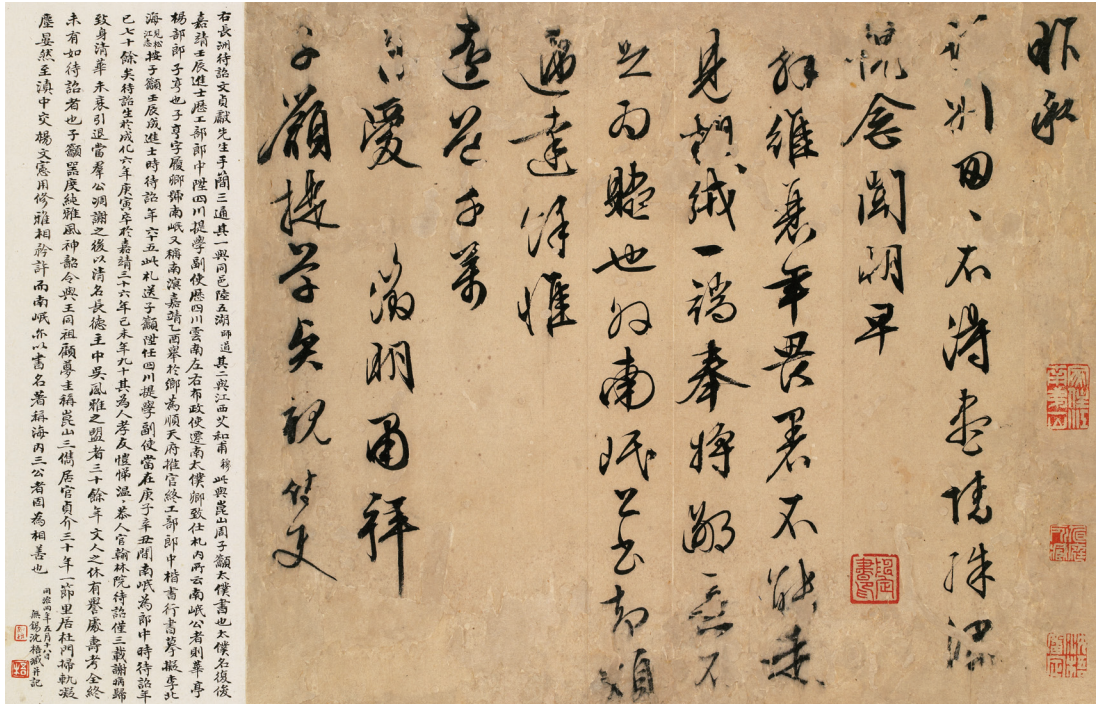 昨承
訪別回〻不得盡情殊深
愧念聞明早
解維衰年畏暑不能走
見輒絨一端奉將鄙意不
足為贐也外南岷公書却煩
過達餘惟
遠道千萬
自愛 徵明再拜
子籲提學矣親侍史
右長洲待詔文貞獻先生手簡三通其一與同邑陸五湖師道其二與江西艾和甫穆此與崑山周子籲太僕書也太僕名復俊
嘉靖壬辰進士歷工部郎中陞四川提學副使歷四川雲南左右布政使遷南太僕卿致仕札內所云南岷公者則華亭
楊部郎子亨也子亨字履卿號南岷又稱南濱嘉靖乙酉舉於鄉為順天府推官終工部郎中楷書行書摹擬李北
海見松江志按子籲壬辰成進士時待詔年六十五此札送子籲陞任四川提學副使當在庚子辛丑間南岷為郎中時待詔年
已七十餘矣待詔生於成化六年庚寅卒於嘉靖三十六年己未年九十其為人孝友愷悌溫〻恭人官翰林院待詔僅三載謝病歸
致身清華未衰引退當羣公凋謝之後以清名長德主中吳風雅之盟者三十餘年文人之休有譽處壽考全終
未有如待詔者也子籲器度純雅風神韶令與王同祖顧夢圭稱崑山三儁居官貞介三十年一節里居杜門掃軌凝
塵晏然至滇中交楊文憲用修雅相矜許而南岷亦以書名著稱海內三公者固為相善也
同治四年五月十八日
無錫沈梧識并記